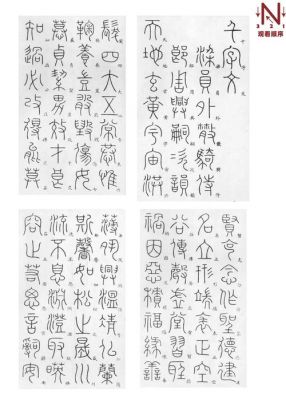 观看顺序
千字文
梁員外散騎侍
郎周興嗣次韻
天地玄黃宇宙洪
髮四大五常恭惟
鞠養豈敢毀傷女
慕貞絜男效才良
知過必改得能莫
賢克念作聖德建
名立形端表正空
谷傳聲虛堂習聽
禍因惡積福緣善
薄夙興溫凊似蘭
斯馨如松之盛川
流不息淵澄取映
容止若思言辭安